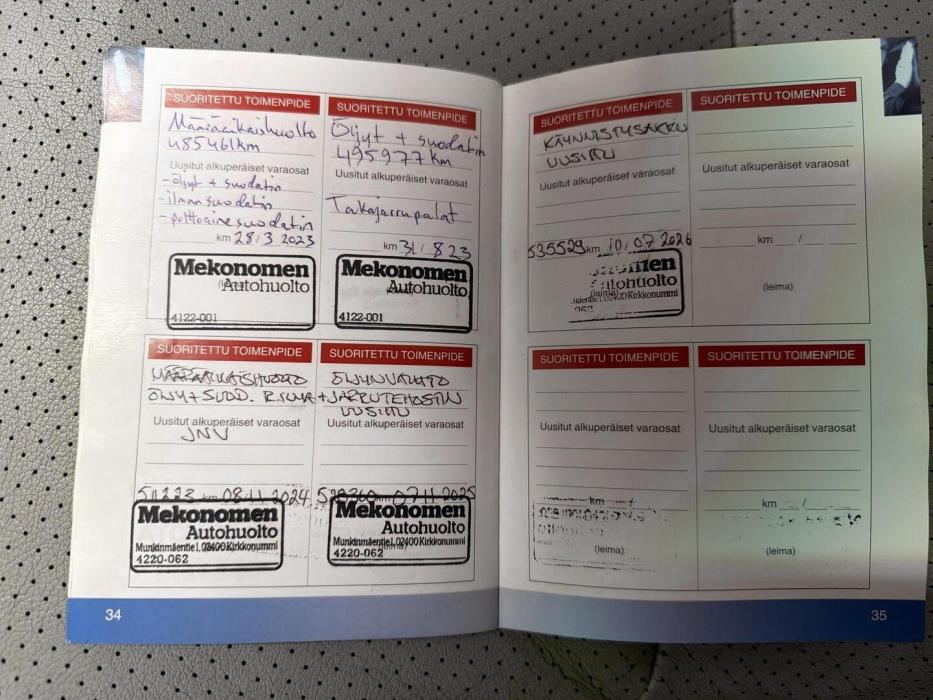 SUORITETTU TOIMENPIDE
Määräaikaishuolto
485461km
Uusitut alkuperäiset varaosat
- öljyt + suodatin
- ilmansuodatin
- polttoainesuodatin
km 28/3 2023
Mekonomen
Autohuolto
4122-001
SUORITETTU TOIMENPIDE
Öljyt + suodatin
495977 km
Uusitut alkuperäiset varaosat
Takajarrupalat
km 31/8 23
Mekonomen
Autohuolto
4122-001
SUORITETTU TOIMENPIDE
MÄÄRÄAIKAISHUOLTO
ÖLJY + SUOD. R.ILMA +
Uusitut alkuperäiset varaosat
JNV
km 08/11 2024
Mekonomen
Autohuolto
Munkinmäentie 1, 02400 Kirkkonummi
4220-062
SUORITETTU TOIMENPIDE
ÖLJYNVAIHTO
JARRUTEHOSTIN
UUSITTU
Uusitut alkuperäiset varaosat
km 07/11 2025
Mekonomen
Autohuolto
Munkinmäentie 1, 02400 Kirkkonummi
(leima)
4220-062
34
SUORITETTU TOIMENPIDE
KÄYNNISTYSAKKU
UUSITTU
Uusitut alkuperäiset varaosat
535529 km 10/07 2026
nomen
utohuolto
(leima)
mäentie 1, 02400 Kirkkonummi
062
SUORITETTU TOIMENPIDE
Uusitut alkuperäiset varaosat
km /
(leima)
SUORITETTU TOIMENPIDE
Uusitut alkuperäiset varaosat
km /
(leima)
SUORITETTU TOIMENPIDE
Uusitut alkuperäiset varaosat
km /
(leima)
35